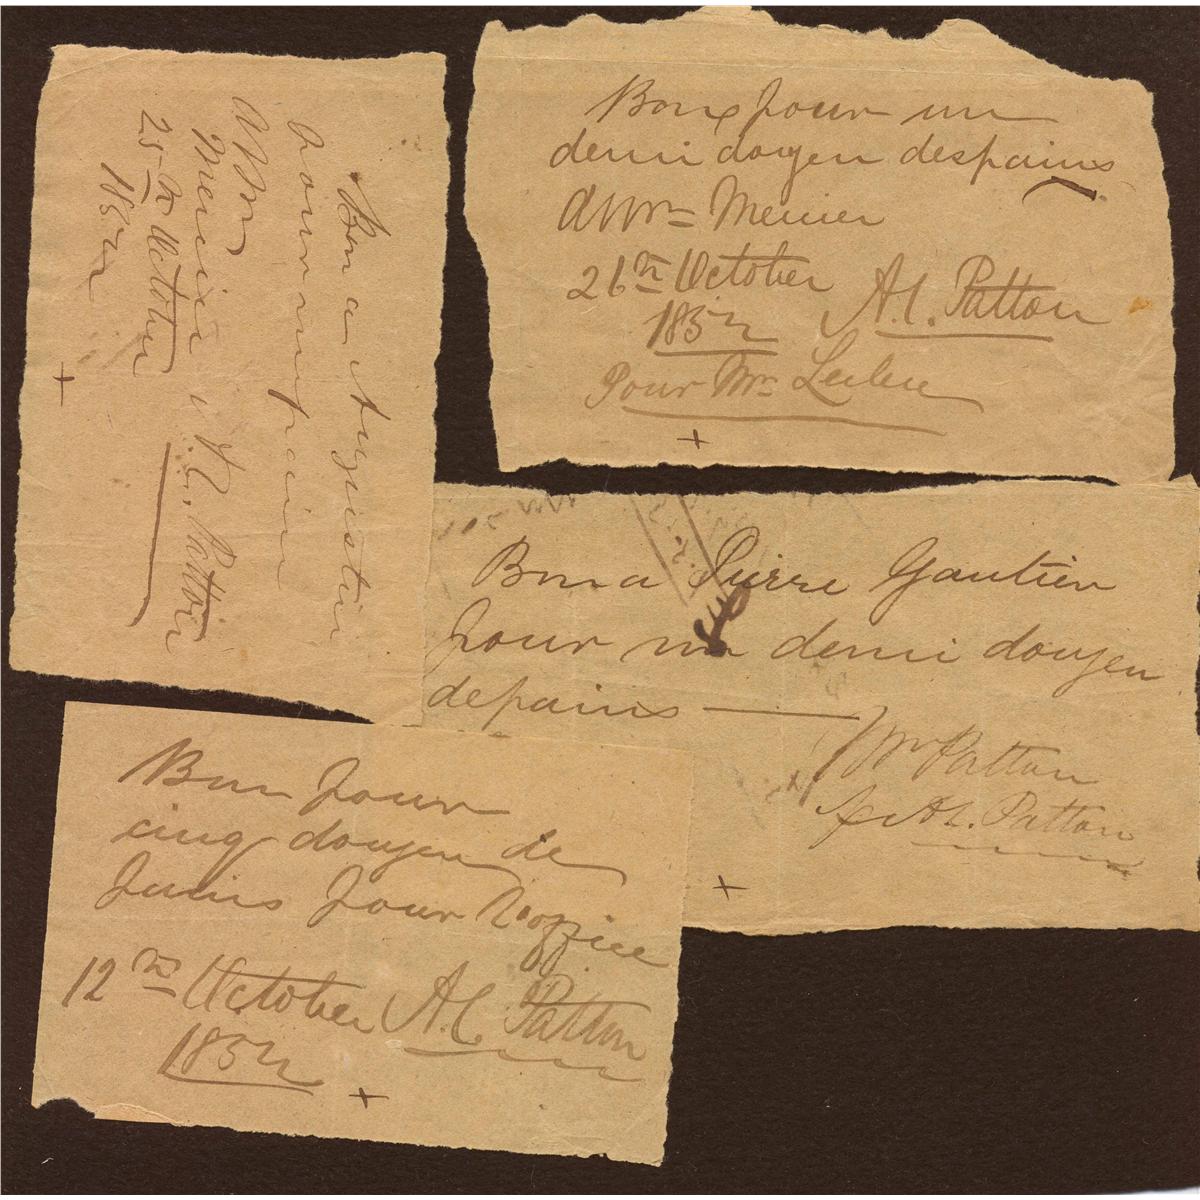 Bon a Augustin
pour un pain
A Mr
Mercier A.C. Patton
25 October
185
+
Bon pour un
demi douzen despains
A Mr= Mercier
26 October A.C. Patton
185
Pour Mr= Leclerc
+
Bon a Pierre Gautier
pour un demi douzen
depains
Wm Patton
A.C. Patton
+
Bon pour
cinq douzen de
pains pour l'office
12 October A.C. Patton
185
+